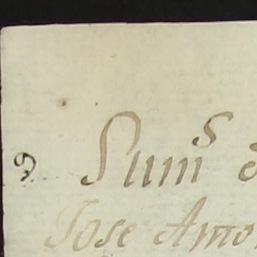 Sum^s
Jose Amo